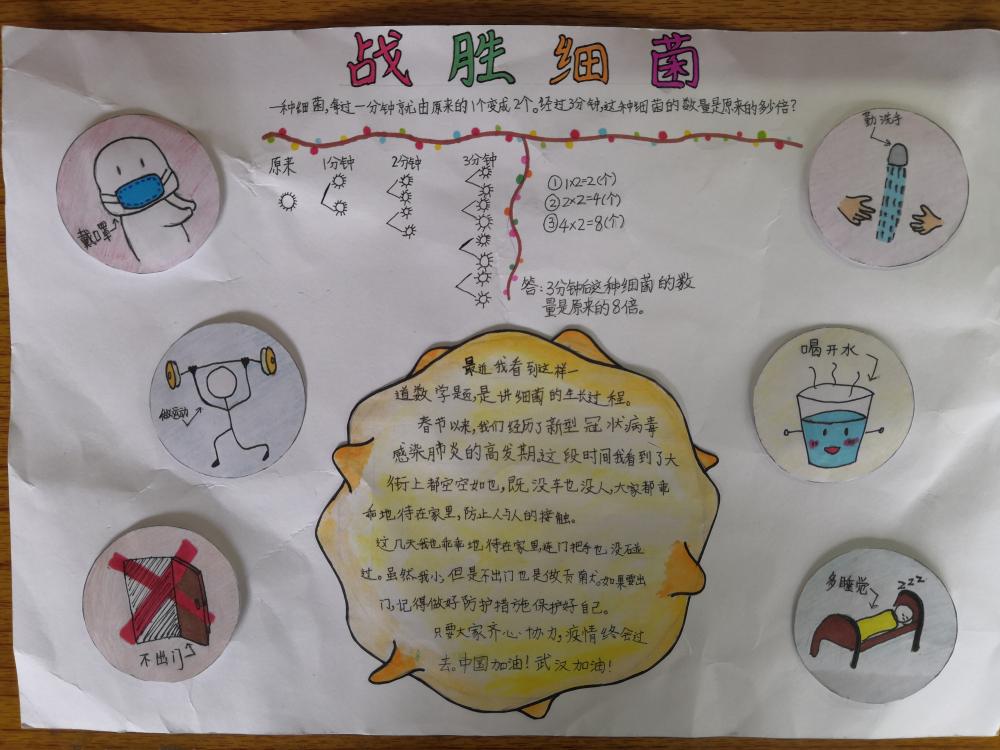 战胜细菌
一种细菌,每过一分钟就由原来的1个变成2个。经过3分钟,这种细菌的数量是原来的多少倍?
原来 1分钟 2分钟 3分钟
①1×2=2(个)
②2×2=4(个)
③4×2=8(个)
答:3分钟后这种细菌的数
量是原来的8倍。
戴口罩
勤洗手
做运动
喝开水
不出门
多睡觉
zzz
最近我看到这样一
道数学题,是讲细菌的生长过程。
春节以来,我们经历了新型冠状病毒
感染肺炎的高发期。这段时间我看到了大
街上都空空如也,既没车也没人,大家都乖
乖地待在家里,防止人与人的接触。
这几天我也乖乖地待在家里,连门把手也没碰
过。虽然我小,但是不出门也是做贡献。如果要出
门,记得做好防护措施,保护好自己。
只要大家齐心协力,疫情终会过
去。中国加油!武汉加油!